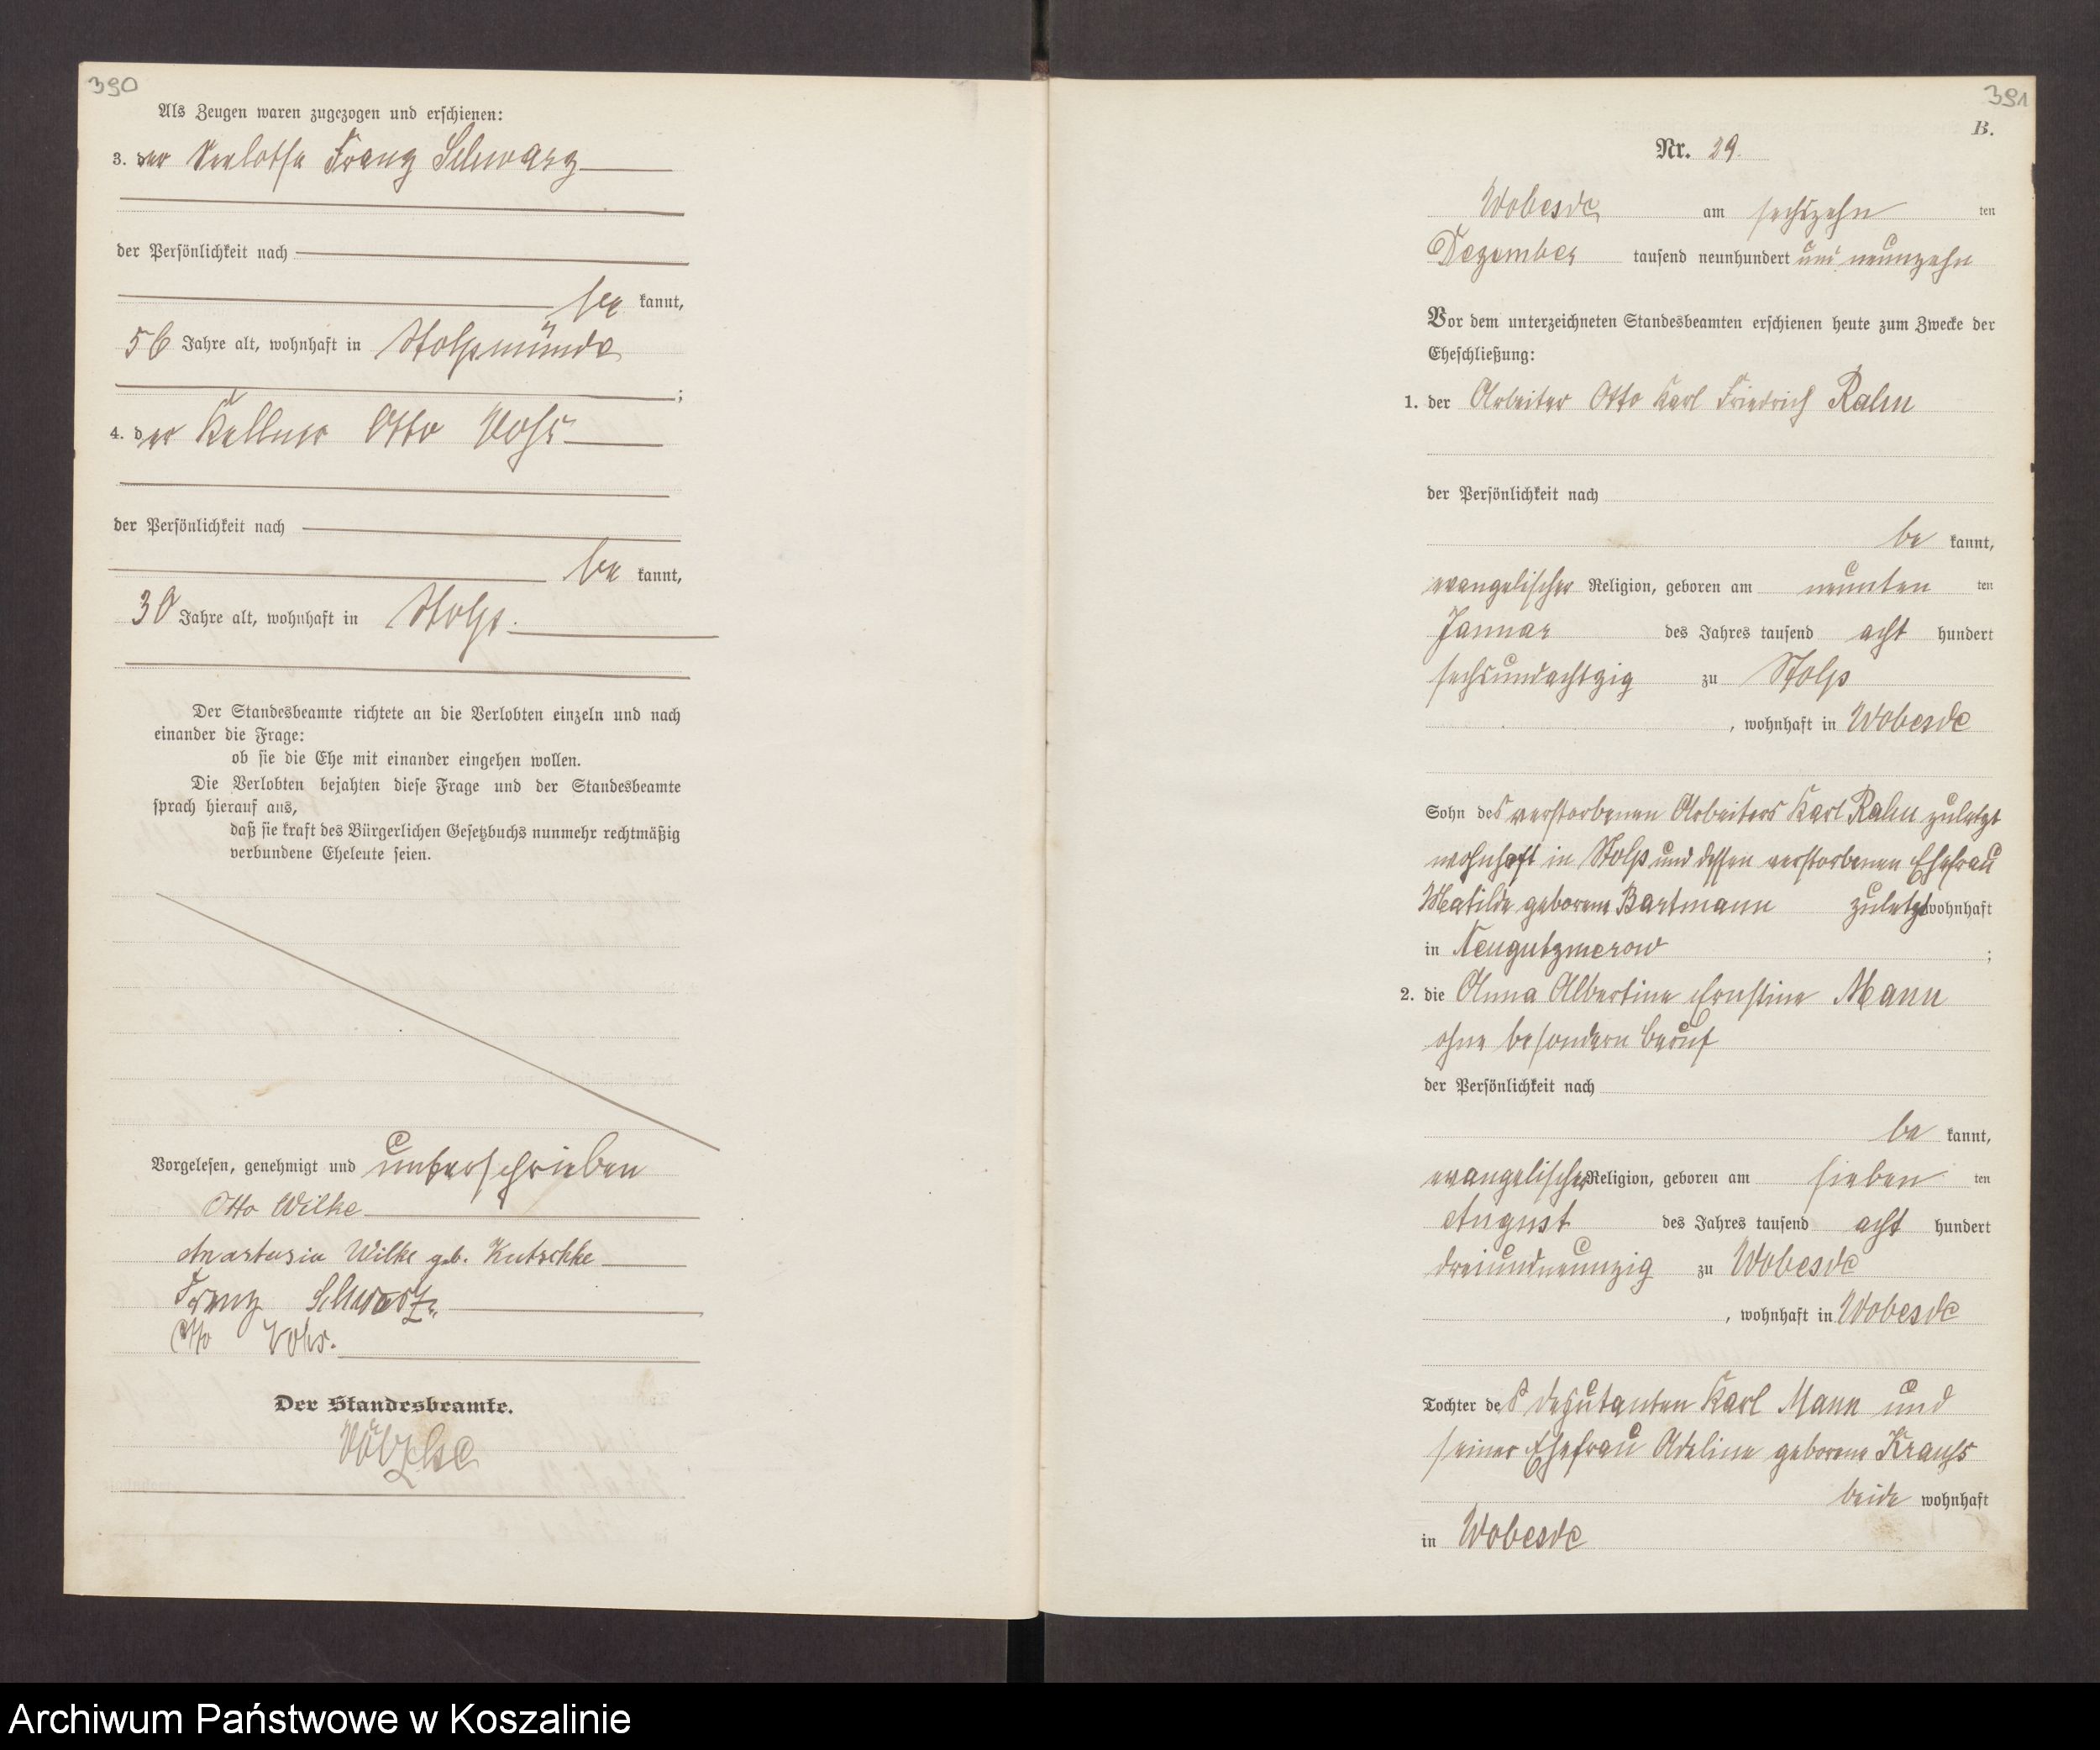 390
Als Zeugen waren zugezogen und erschienen:
3. der Seelotse Franz Schwarz
der Persönlichkeit nach
be kannt,
56 Jahre alt, wohnhaft in Stolpmünde
;
4. der Kellner Otto Vohs
der Persönlichkeit nach
be kannt,
30 Jahre alt, wohnhaft in Stolp.
Der Standesbeamte richtete an die Verlobten einzeln und nach
einander die Frage:
ob sie die Ehe mit einander eingehen wollen.
Die Verlobten bejahten diese Frage und der Standesbeamte
sprach hierauf aus,
daß sie kraft des Bürgerlichen Gesetzbuchs nunmehr rechtmäßig
verbundene Eheleute seien.
Vorgelesen, genehmigt und unterschrieben
Otto Wilke
Anastasia Wilke geb. Kutschke
Franz Schwarz.
Otto Vohs.
Der Standesbeamte.
391
B.
Nr. 29.
Wobesde am sechszehn ten
Dezember tausend neunhundert und neunzehn
Vor dem unterzeichneten Standesbeamten erschienen heute zum Zwecke der
Eheschließung:
1. der Arbeiter Otto Karl Friedrich Rahn
der Persönlichkeit nach
be kannt,
evangelischer Religion, geboren am neunten ten
Januar des Jahres tausend acht hundert
sechsundachtzig zu Stolp
, wohnhaft in Wobesde
Sohn des verstorbenen Arbeiters Karl Rahn zuletzt
wohnhaft in Stolp und dessen verstorbenen Ehefrau
Matilde geborene Bartmann zuletzt wohnhaft
in Neugutzmerow ;
2. die Anna Albertine Ernstine Mann
ohne besondern Beruf
der Persönlichkeit nach
be kannt,
evangelischer Religion, geboren am sieben ten
August des Jahres tausend acht hundert
dreiundneunzig zu Wobesde
, wohnhaft in Wobesde
Tochter des Deputanten Karl Mann und
seiner Ehefrau Adeline geborene Krauss
beide wohnhaft
in Wobesde
Archiwum Państwowe w Koszalinie